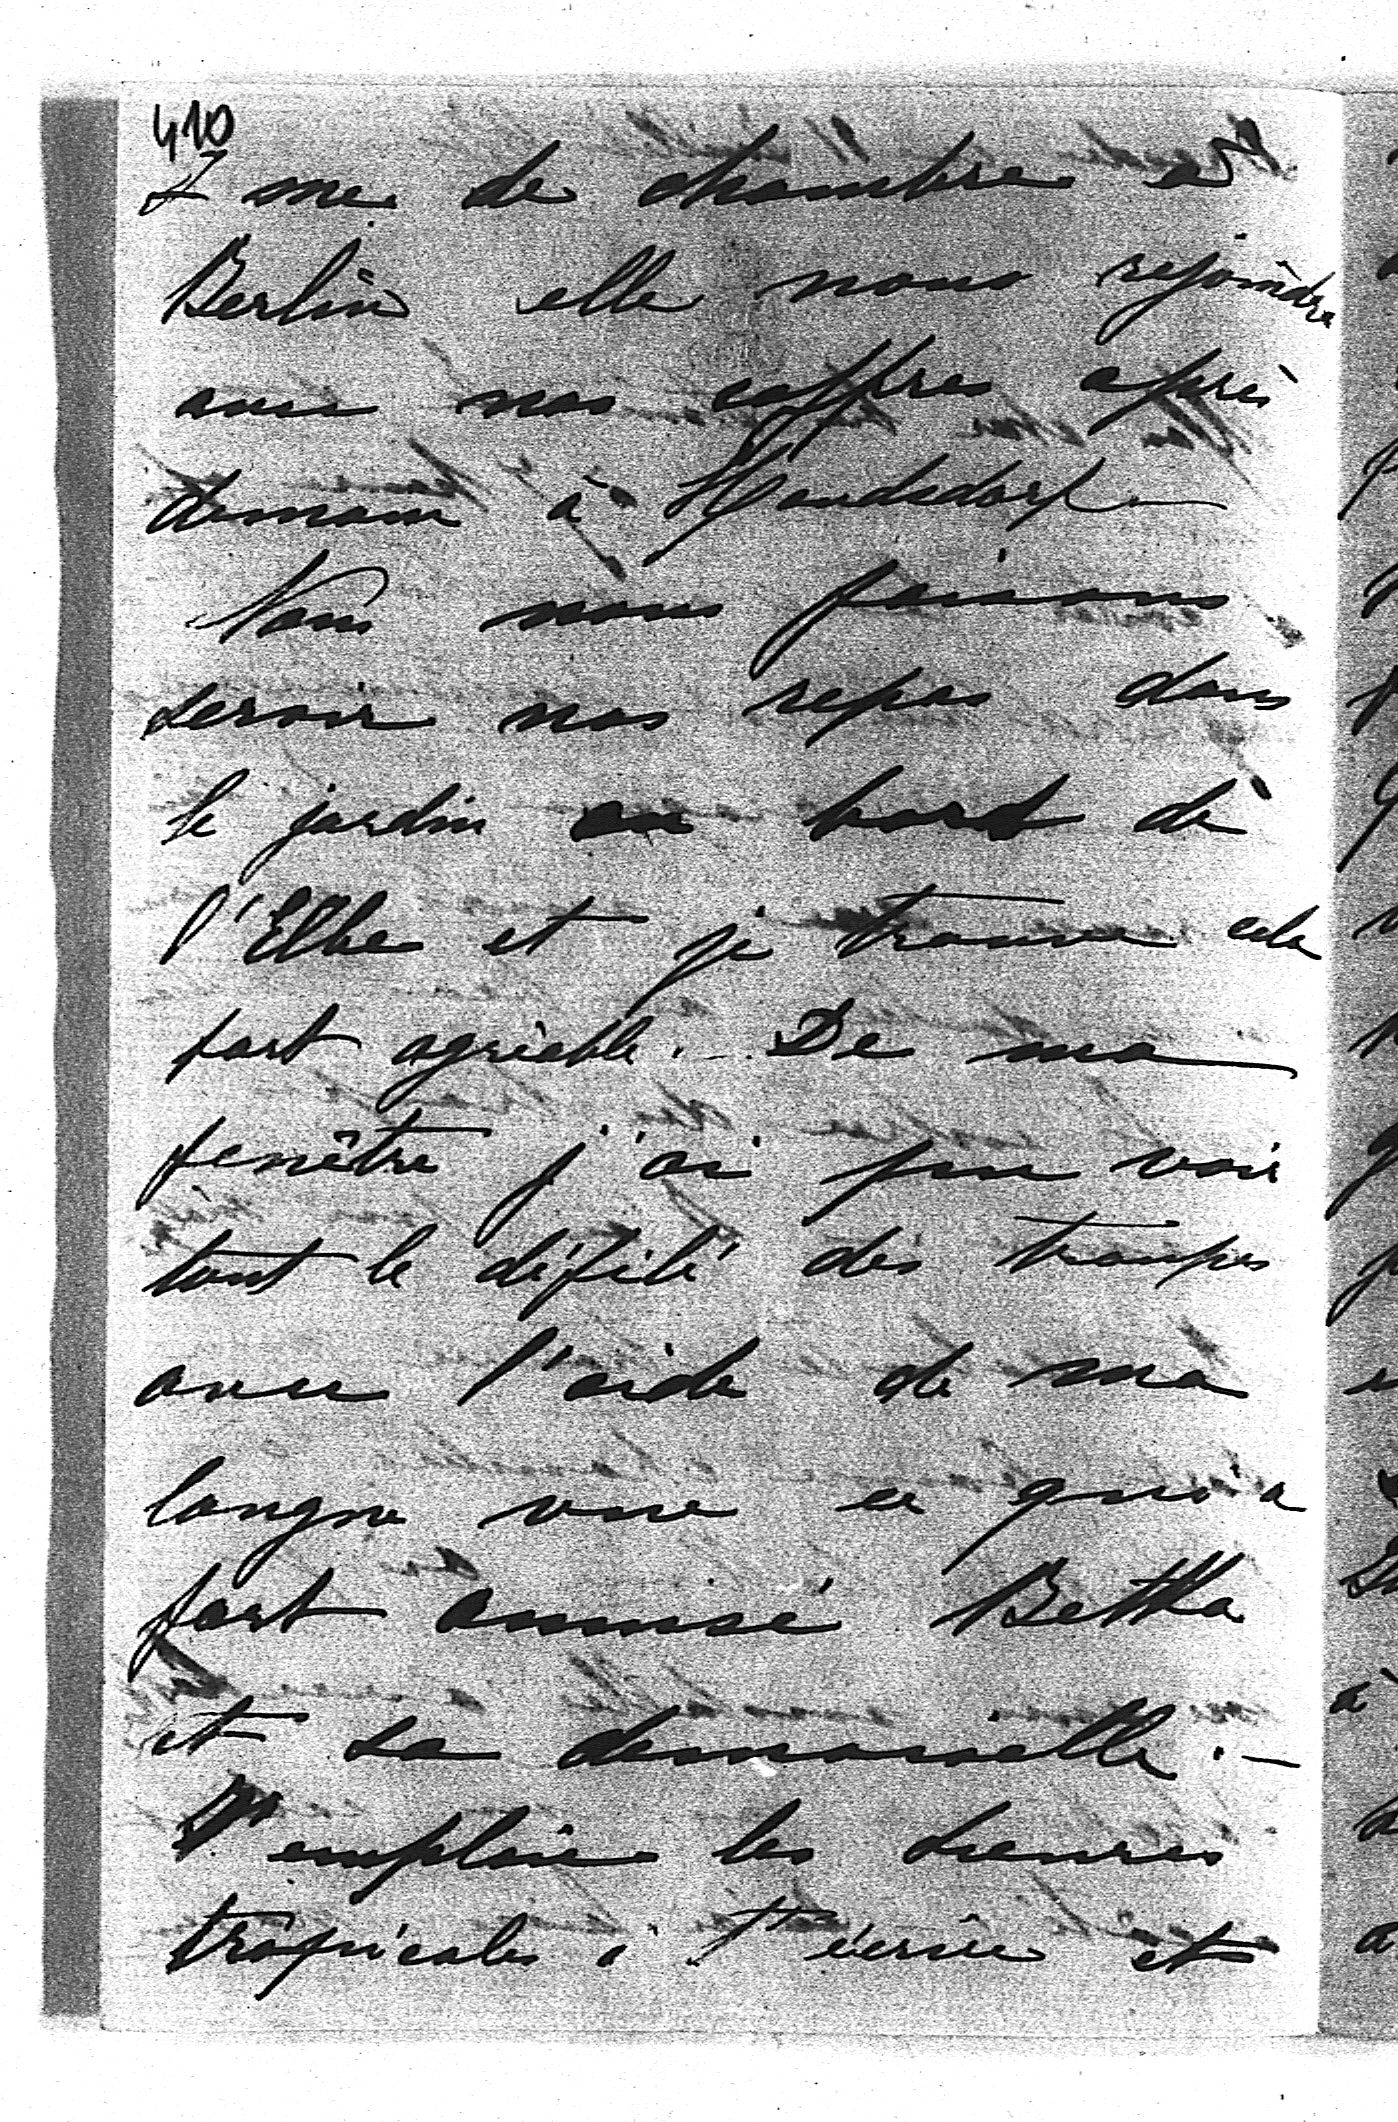 410
f me de chambre à
Berlin elle nous rejoindra
avec nos coffres après
demain à
Nous nous faisons
servir nos repas dans
le jardin au bord de
l'Elbe et je trouve cela
fort agréable. De ma
fenêtre j'ai pu voir
tout le défilé des troupes
avec l'aide de ma
longue vue ce qui a
fort amusé Betka
et sa demoiselle. —
J'emploie les heures
tropicales à t'écrire et